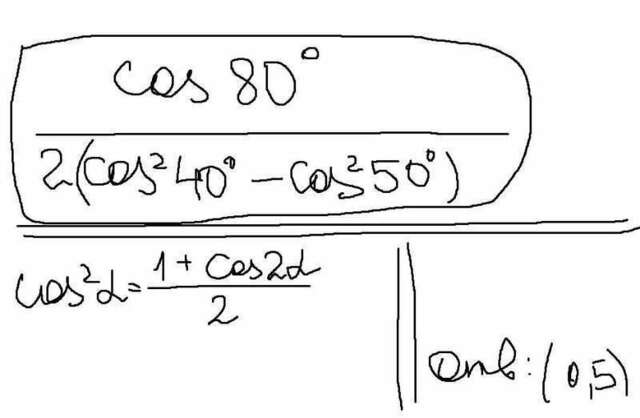 cos 80°
2(cos²40° - cos²50°)
cos²α = 1 + cos2α
2
Отв: (0,5)